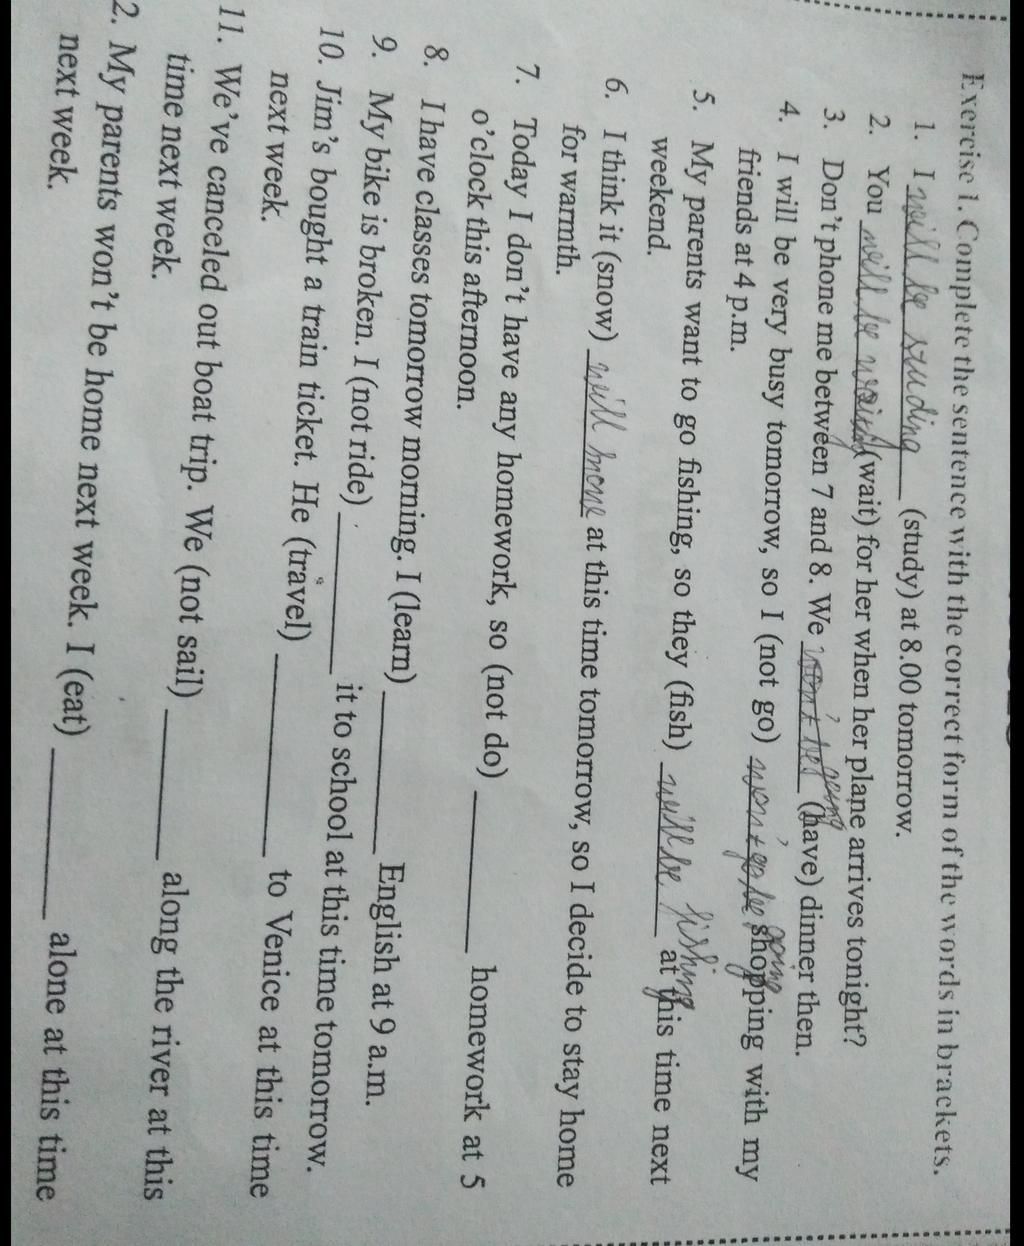 Exercise 1. Complete the sentence with the correct form of the words in brackets.
1. I will be studing (study) at 8.00 tomorrow.
2. You will be (wait) for her when her plane arrives tonight?
3. Don't phone me between 7 and 8. We (have) dinner then.
4. I will be very busy tomorrow, so I (not go) won't going shopping with my
friends at 4 p.m.
5. My parents want to go fishing, so they (fish) will be fishing at this time next
weekend.
6. I think it (snow) will at this time tomorrow, so I decide to stay home
for warmth.
7. Today I don't have any homework, so (not do) ________ homework at 5
o'clock this afternoon.
8. I have classes tomorrow morning. I (learn) ________ English at 9 a.m.
9. My bike is broken. I (not ride) ________ it to school at this time tomorrow.
10. Jim's bought a train ticket. He (travel) ________ to Venice at this time
next week.
11. We've canceled out boat trip. We (not sail) ________ along the river at this
time next week.
2. My parents won't be home next week. I (eat) ________ alone at this time
next week.